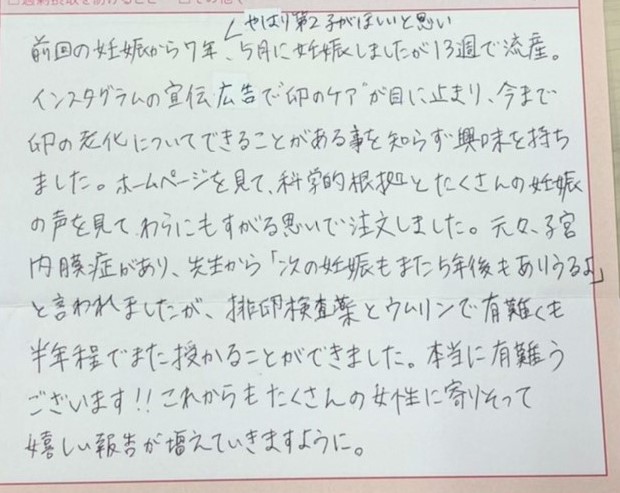 やはり第2子がほしいと思い
前回の妊娠から7年、5月に妊娠しましたが13週で流産。
インスタグラムの宣伝広告で"卵のケア"が目に止まり、今まで
卵の老化についてできることがある事を知らず興味を持ち
ました。ホームページを見て、科学的根拠とたくさんの妊娠
の声を見て、わらにもすがる思いで注文しました。元々、子宮
内膜症があり、先生から「次の妊娠もまた5年後もありうるよ」
と言われましたが、排卵検査薬とウムリンで有難くも
半年程でまた授かることができました。本当に有難う
ございます!!これからもたくさんの女性に寄りそって
嬉しい報告が増えていきますように。